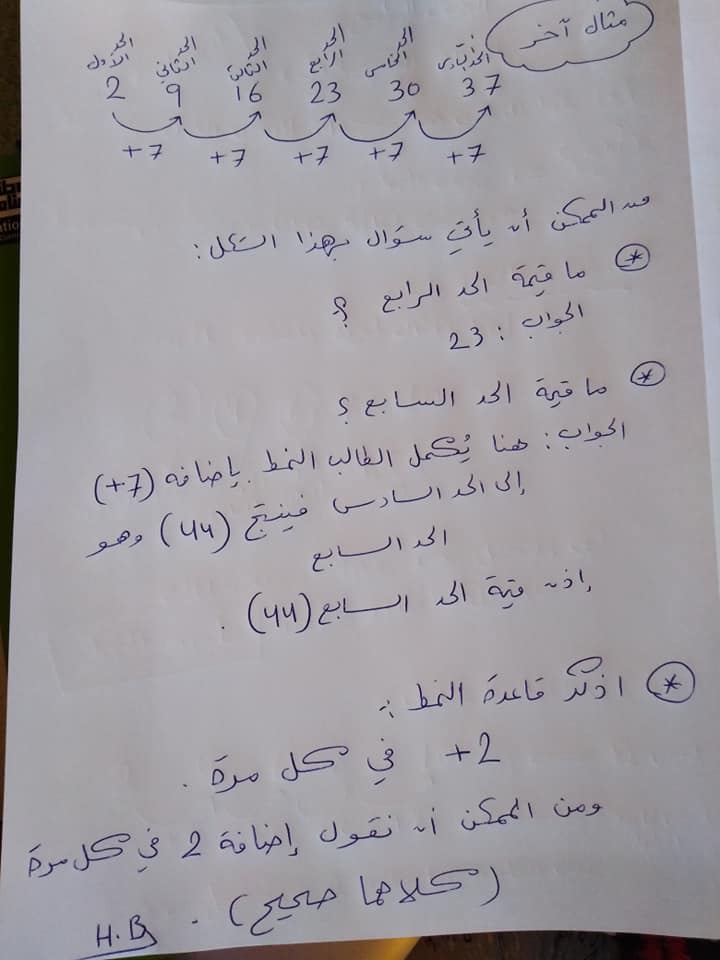 مثال آخر
الحد الأول الحد الثاني الحد الثالث الحد الرابع الحد الخامس الحد السادس
2 9 16 23 30 37
+7 +7 +7 +7 +7
من الممكن أن يأتي سؤال بهذا الشكل:
* ما قيمة الحد الرابع ؟
الجواب: 23
* ما قيمة الحد السابع ؟
الجواب: هنا يُكمل الطالب النمط بإضافة (+7)
إلى الحد السادس فينتج (44) وهو
الحد السابع
إذن قيمة الحد السابع (44) .
* اذكر قاعدة النمط :-
+2 في كل مرة .
ومن الممكن أن نقول إضافة 2 في كل مرة
(كلاهما صحيح) .
H.B